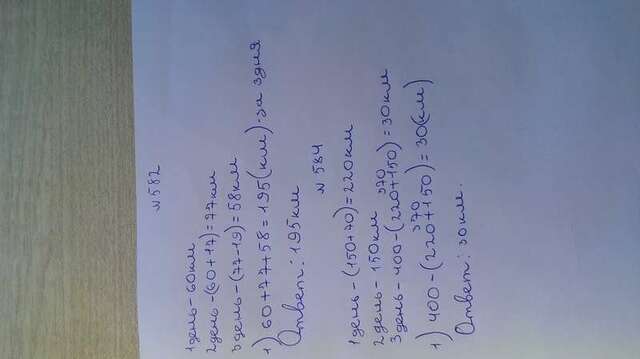 №582
1 день - 60км
2 день - (60+17)=77км
3 день - (77-19)=58км
1) 60+77+58=195(км) - за 3 дня
Ответ: 195км
№584
1 день - (150+70)=220км
2 день - 150км
370
3 день - 400-(220+150)=30км
370
1) 400-(220+150)=30(км)
Ответ: 30км.